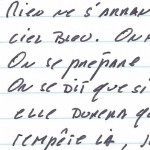 Rien ne s'arran
ciel bleu. On
On se prépare
On se dit que si
elle durera qu
tempête là, j